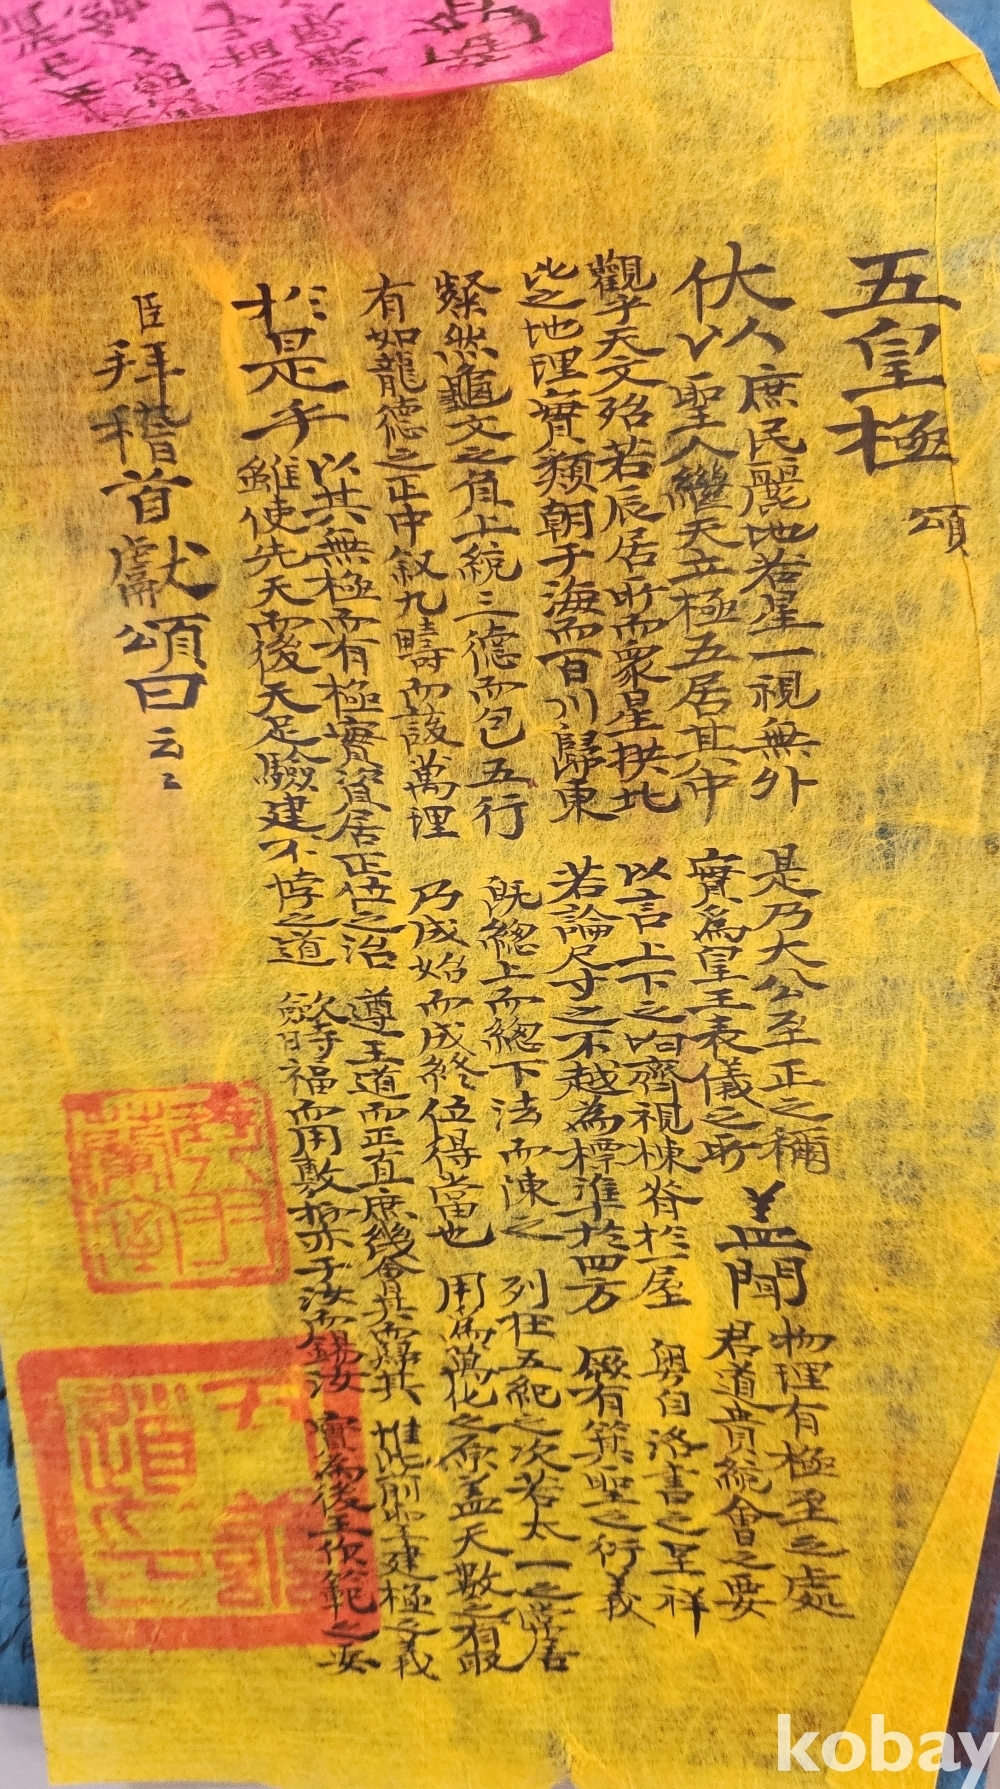 五皇極
頌
伏以
庶民麗地若星一視無外
聖人繼天立極五居其中
是乃大公至正之稱
實為皇王表儀之所
盖聞
物理有極至之處
君道貴統會之要
觀乎天文殆若辰居所而眾星拱北
比之地理實類朝于海而百川歸東
以言上下之咍齊視棟脊於一屋
若論尺寸之不越為標準於四方
粤自洛書之呈祥
厥有箕聖之衍義
粲然龜文之負上統三德而包五行
有如龍德之正中叙九疇而該萬理
既緫上而緫下法而陳之
乃成始而成終位得當也
列在五紀之次若太一之常居
用為萬化之原盖天數之有取
於是乎
以其無極而有極實資居正位之治
雖使先天而後天足驗建不悖之道
遵王道而正直庶幾會其而歸其
斂時福而用敷抑亦于汝而錫汝
惟此前聖建極之義
實為後王作範之要
臣拜稽首獻頌曰云〻
kobay